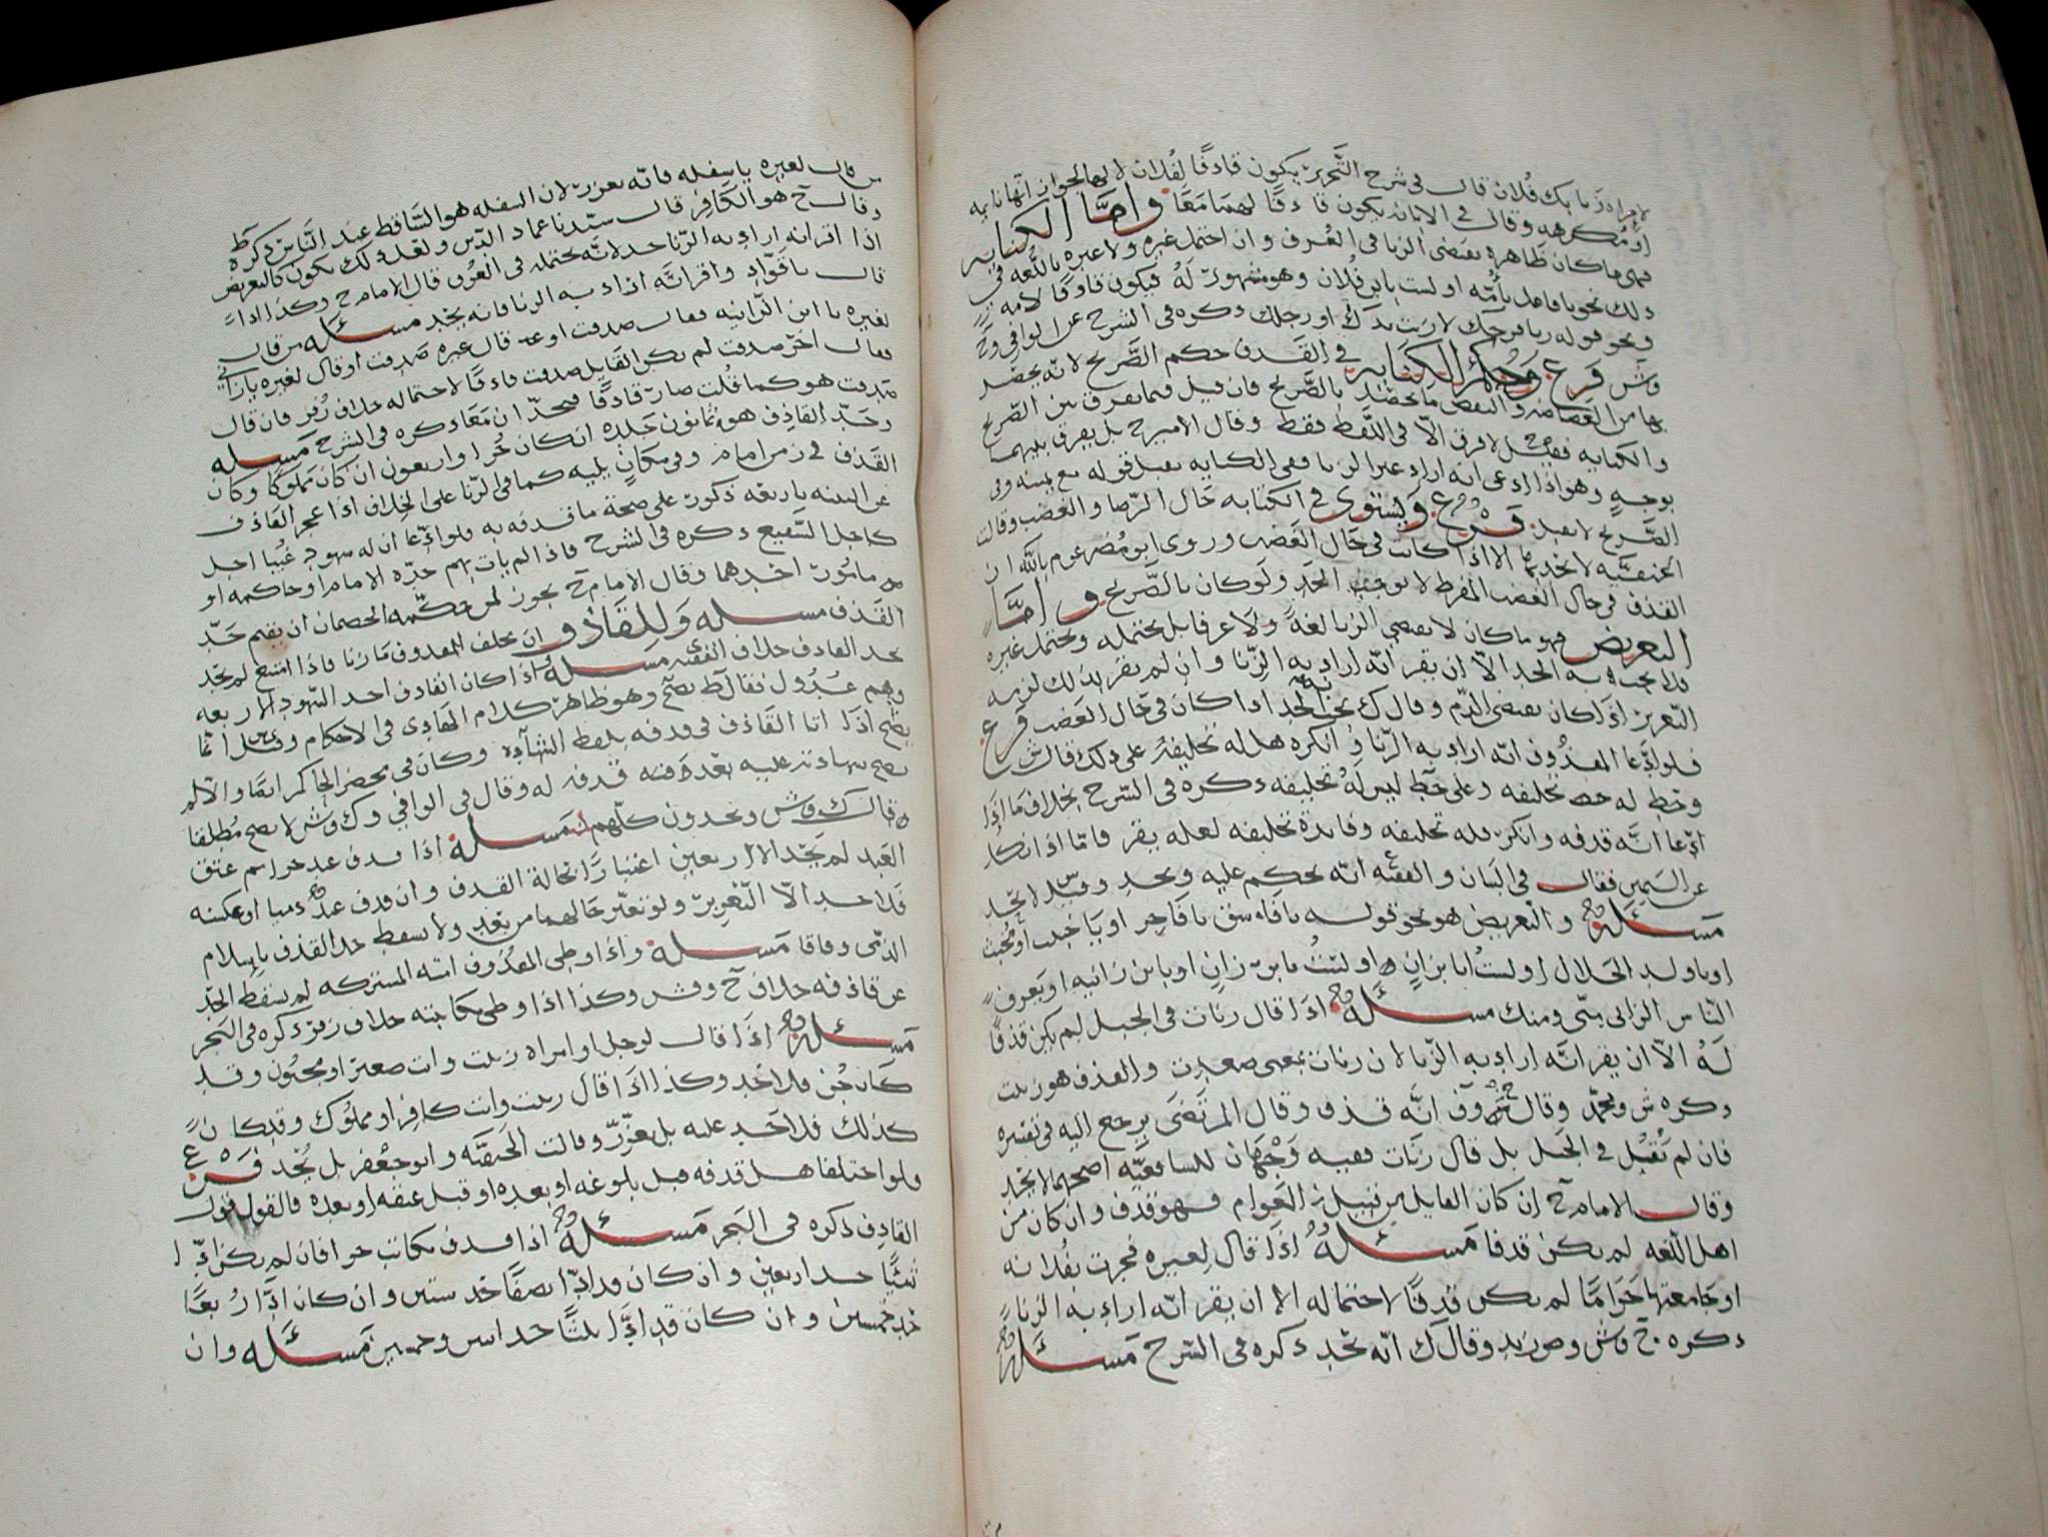 لامراه زنا بك فلان قال في شرح التحرير يكون قاذفا لفلان لا لها لجواز انها نايمه
او مكرهه وقال في الابانه يكون قاذفا لهما معا واما الكنايه
فهي ما كان ظاهره يقتضي الزنا في العرف وان احتمل غيره ولا عبره باللغه في
ذلك نحو يا فاعل بأمه او لست بابن فلان وهو مشهور له فيكون قاذفا لامه
ونحو قوله زنا فرجك لا زنت يدك او رجلك ذكره في الشرح عن الوافي وح
وش فرع وحكم الكنايه في القذف حكم الصريح لانه يحصل
بها من الغضاضه والنقص ما يحصل بالصريح فان قيل فما يفرق بين الصريح
والكنايه فقيل لا فرق الا في اللفظ فقط وقال الامير ح بل يفرق بينهما
بوجه وهو اذا ادعى انه اراد غير الزنا ففي الكنايه يقبل قوله مع يمينه وفي
الصريح لا يقبل فرع ويستوي في الكنايه حال الرضا والغضب وقالت
الحنفيه لا يحد بها الا اذا كانت في حال الغضب وروى ابو مضر عن م بالله ان
القذف في حال الغضب المفرط لا يوجب الحد ولو كان بالصريح واما
التعريض فهو ما كان لا يقتضي الزنا لغة ولا عرفا بل يحتمله ويحتمل غيره
فلا يجب به الحد الا ان يقر انه اراد به الزنا وان لم يقر بذلك لزمه
التعزير اذا كان يقتضي الذم وقال ك يجب به الحد اذا كان في حال الغضب فرع
فلو ادعا المقذوف انه اراد به الزنا وانكره هل له تحليفه على ذلك قال ش
وخط له حط تحليفه وعلى خط ليس له تحليفه ذكره في الشرح بخلاف ما اذا
ادعا انه قذفه وانكر فله تحليفه وفايدة تحليفه لعله يقر فاما اذا نكل
عن اليمين فقال في البيان والفقيه ع انه يحكم عليه ويحد وقيل لا يحد
مسئله والتعريض هو نحو قوله يا فاسق يا فاجر او يا خبيث او مخبث
او يا ولد الحلال او لست انا بزان او لست بابن زان او يا بن زانيه او يعرف
الناس الزاني مني ومنك مسئله اذا قال زنات في الجبل لم يكن قذفا
له الا ان يقر انه اراد به الزنا لان زنات بمعنى صعدت والقذف هو زنيت
ذكره ش ومحمد وقال ح وف انه قذف وقال المرتضى يرجع اليه في تفسيره
فان لم يقل في الجبل بل قال زنات ففيه وجهان للشافعيه اصحهما لا يحد
وقال الامام ح ان كان القايل من قبيل العوام فهو قذف وان كان من
اهل اللغه لم يكن قذفا مسئله اذا قال لغيره فجرت بفلانه
او جامعتها حراما لم يكن قذفا لاحتماله الا ان يقر انه اراد به الزنا
ذكره ح وش وص زيد وقال ك انه يحد ذكره في الشرح مسئله
من قال لغيره يا سفله فانه يعزر لان السفله هو الساقط عند الناس ذكره ط
وقال ح هو الكافر قال سيدنا عماد الدين ولعل ذلك يكون كالتعريض
اذا اقر انه اراد به الزنا حد لانه يحتمله في العرف قال الامام ح وكذا اذا
قال يا قواد واقر انه اراد به الزنا فانه يحد مسئله من قال
لغيره يا ابن الزانيه فقال صدقت او قال غيره صدقت او قال لغيره يا زاني
فقال اخر صدقت لم يكن القايل صدقت قاذفا لاحتماله خلاف زفر فان قال
صدقت هو كما قلت صار قاذفا فيحدان معا ذكره في الشرح مسئله
وحد القاذف هو ثمانون جلده ان كان حرا واربعون ان كان مملوكا وكان
القذف في زمن امام وفي مكان يليه كما في الزنا على الخلاف اذا عجز القاذف
عن البينه باربعه ذكور على صحة ما قذفه به ولو ادعا ان له شهود غيبا اجل
كاجل الشفيع ذكره في الشرح فاذا لم يات بهم حده الامام او حاكمه او
من مامور احدهما وقال الامام ح يجوز لمن حكمه الخصمان ان يقيم حد
القذف مسئله وللقاذف ان يحلف المقذوف ما زنا فاذا امتنع لم يحد
بحد القاذف خلاف الفقيه ي مسئله اذا كان القاذف احد الشهود الاربعه
وهم عدول فقال ط يصح وهو ظاهر كلام الهادي في الاحكام وقيل انما
يصح اذا اتا القاذف في قذفه بلفظ الشهاده وكان في محضر الحاكم ايضا والا لم
يصح شهادته عليه بعد قذفه له وقال في الوافي وك وش لا يصح مطلقا
وقال ك وش ويحدون كلهم مسئله اذا قذف عبد حرا ثم عتق
العبد لم يحد الا اربعين اعتبارا بحالة القذف وان قذف عبد ذميا او عكسه
فلا حد الا التعزير ولو تغير حالهما من بعد ولا يسقط حد القذف باسلام
الذمي وفاقا مسئله واذا وطي المقذوف امته المشتركه لم يسقط الحد
عن قاذفه خلاف ح وش وكذا اذا وطي مكاتبته خلاف زفر ذكره في البحر
مسئله اذا قال لرجل او امراه زنيت وانت صغير او مجنون وقد
كان جن فلا حد وكذا اذا قال زنيت وانت كافر او مملوك وقد كان
كذلك فلا حد عليه بل يعزر وقالت الحنفيه وابو جعفر بل يحد فرع
ولو اختلفا هل قذفه قبل بلوغه او بعده او قبل عتقه او بعده فالقول قول
القاذف ذكره في البحر مسئله اذا قذف مكاتب حرا فان لم يكن ادا
شيئا حد اربعين وان كان قد ادا نصفا حد ستين وان كان ادا ربعا
حد خمسين وان كان قد ادا ثلثا حد اس وخمسين مسئله وان